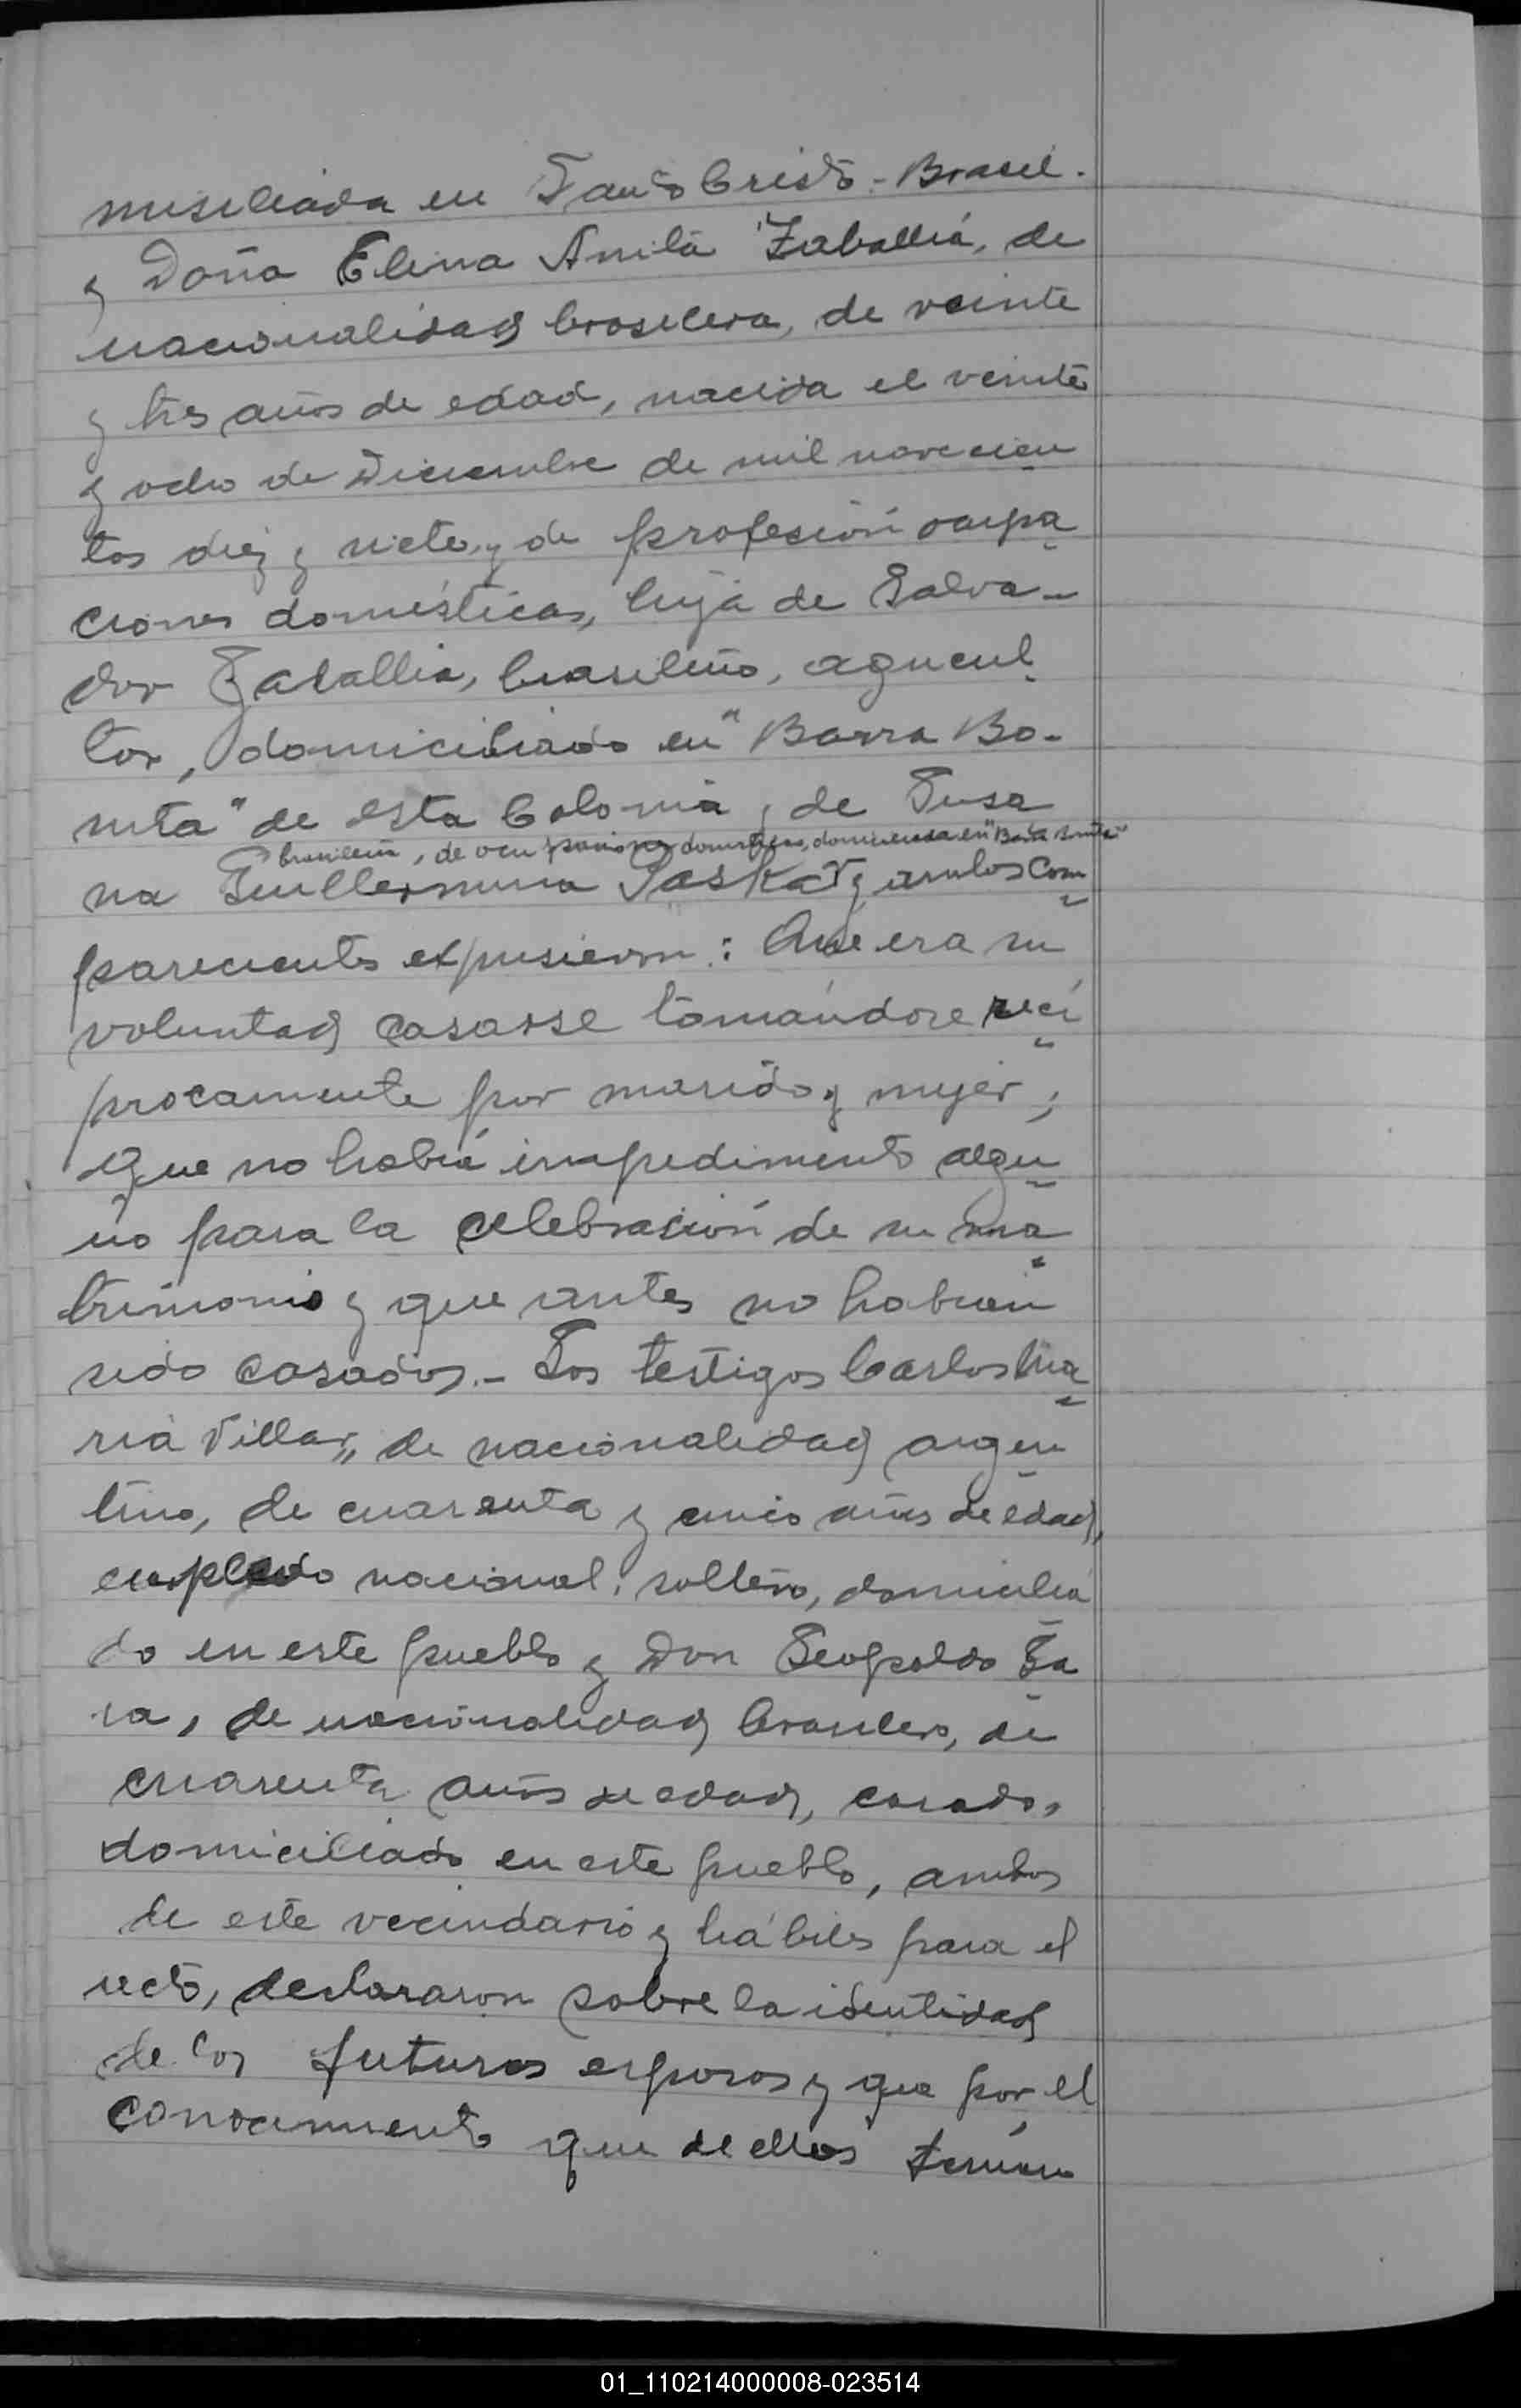 misiliada en Santo Cristo - Brasil.
y Doña Elina Anita Zaballia, de
nacionalidad brasilera, de veinte
y tres años de edad, nacida el veinte
y ocho de Diciembre de mil novecien
tos diez y siete, y de profesión ocupa
ciones domésticas, hija de Salva-
dor Zaballia, brasileño, agricul
tor, domiciliado en "Barra Bo-
nita" de esta Colonia, de Susa
brasileña, de ocupaciones domésticas, domiciliada en "Barra Bonita"
na Guillermina Paska y ambos com
parecientes expusieron: Que era su
voluntad casarse tomándose recí
procamente por marido y mujer;
que no había impedimento algu
no para la celebración de su ma
trimonio y que antes no habían
sido casados.- Los testigos Carlos Ma
ría Villar, de nacionalidad argen
tino, de cuarenta y cinco años de edad,
empleado nacional, soltero, domicilia
do en este pueblo y Don Leopoldo
de nacionalidad brasilero, de
cuarenta años de edad, casado,
domiciliado en este pueblo, ambos
de este vecindario y hábiles para el
acto, declararon sobre la identidad
de los futuros esposos y que por el
conocimiento que de ellos tenían
01_110214000008-023514